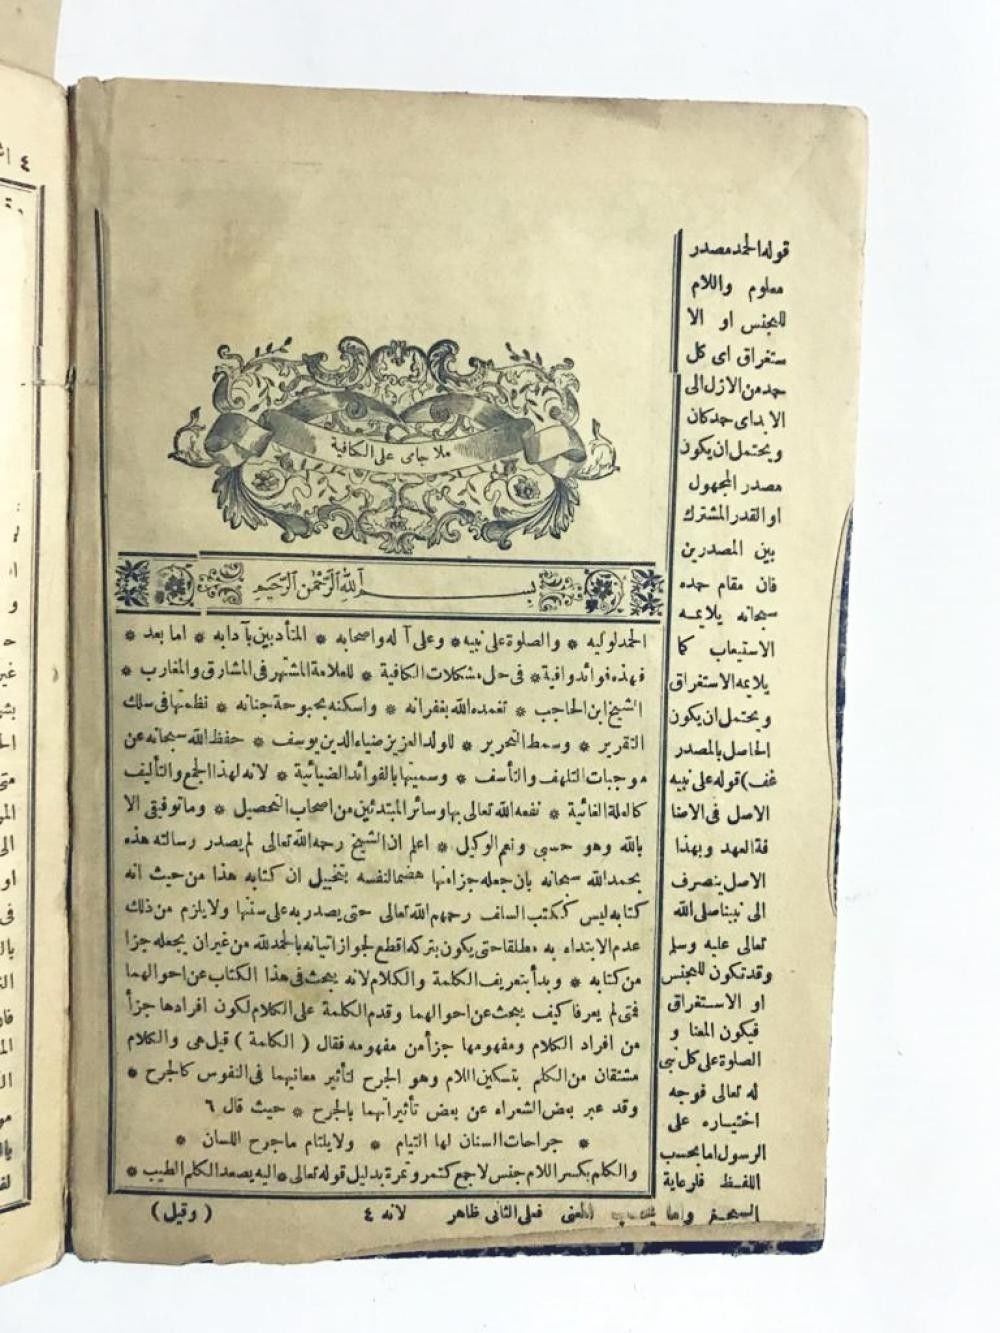 ملا جامى على الكافية
بسم الله الرحمن الرحيم
الحمد لوليه * والصلوة على نبيه * وعلى آله واصحابه * المتأدبين بآدابه * اما بعد *
فهذه فوائد وافية * فى حل مشكلات الكافية * للعلامة المشتهر فى المشارق والمغارب *
الشيخ ابن الحاجب * تغمده الله بغفرانه * واسكنه بحبوحة جنانه * نظمتها فى سلك
التقرير * وسمط التحرير * للولد العزيز ضياء الدين يوسف * حفظ الله سبحانه عن
موجبات التلهف والتأسف * وسميتها بالفوائد الضيائية * لانه لهذا الجمع والتأليف
كالعلة الغائية * نفعه الله تعالى بها وسائر المبتدئين من اصحاب التحصيل * وما توفيقى الا
بالله وهو حسبى ونعم الوكيل * اعلم ان الشيخ رحمه الله تعالى لم يصدر رسالته هذه
بحمد الله سبحانه بان جعله جزأ منها هضما لنفسه بتخييل ان كتابه هذا من حيث انه
كتابه ليس ككتب السلف رحمهم الله تعالى حتى يصدر به على سننها ولا يلزم من ذلك
عدم الابتداء به مطلقا حتى يكون بتركه اقطع لجواز اتيانه بالحمد لله من غير ان يجعله جزأ
من كتابه * وبدأ بتعريف الكلمة والكلام لانه يبحث فى هذا الكتاب عن احوالهما
فمتى لم يعرفا كيف يبحث عن احوالهما وقدم الكلمة على الكلام لكون افرادها جزأ
من افراد الكلام ومفهومها جزأ من مفهومه فقال ( الكلمة ) قيل هى والكلام
مشتقان من الكلم بتسكين اللام وهو الجرح لتأثير معانيهما فى النفوس كالجرح *
وقد عبر بعض الشعراء عن بعض تأثيراتهما بالجرح * حيث قال ٦
* جراحات السنان لها التيام * ولا يلتام ما جرح اللسان *
والكلم بكسر اللام جنس لا جمع كتمر وتمرة بدليل قوله تعالى * اليه يصعد الكلم الطيب *
قوله الحمد مصدر
معلوم واللام
للجنس او الا
ستغراق اى كل
حمد من الازل الى
الابد اى حمد كان
ويحتمل ان يكون
مصدر المجهول
او القدر المشترك
بين المصدرين
فان مقام حمده
سبحانه يلايمه
الاستيعاب كما
يلايمه الاستغراق
ويحتمل ان يكون
الحاصل بالمصدر
غف) قوله على نبيه
الاصل فى الاضا
فة العهد وبهذا
الاصل ينصرف
الى نبينا صلى الله
تعالى عليه وسلم
وقد تكون للجنس
او الاستغراق
فيكون المعنا و
الصلوة على كل نبى
له تعالى فوجه
اختياره على
الرسول اما بحسب
اللفظ فلرعاية
السجع واما بحسب المعنى فعلى الثانى ظاهر لانه ٤
( وقيل )